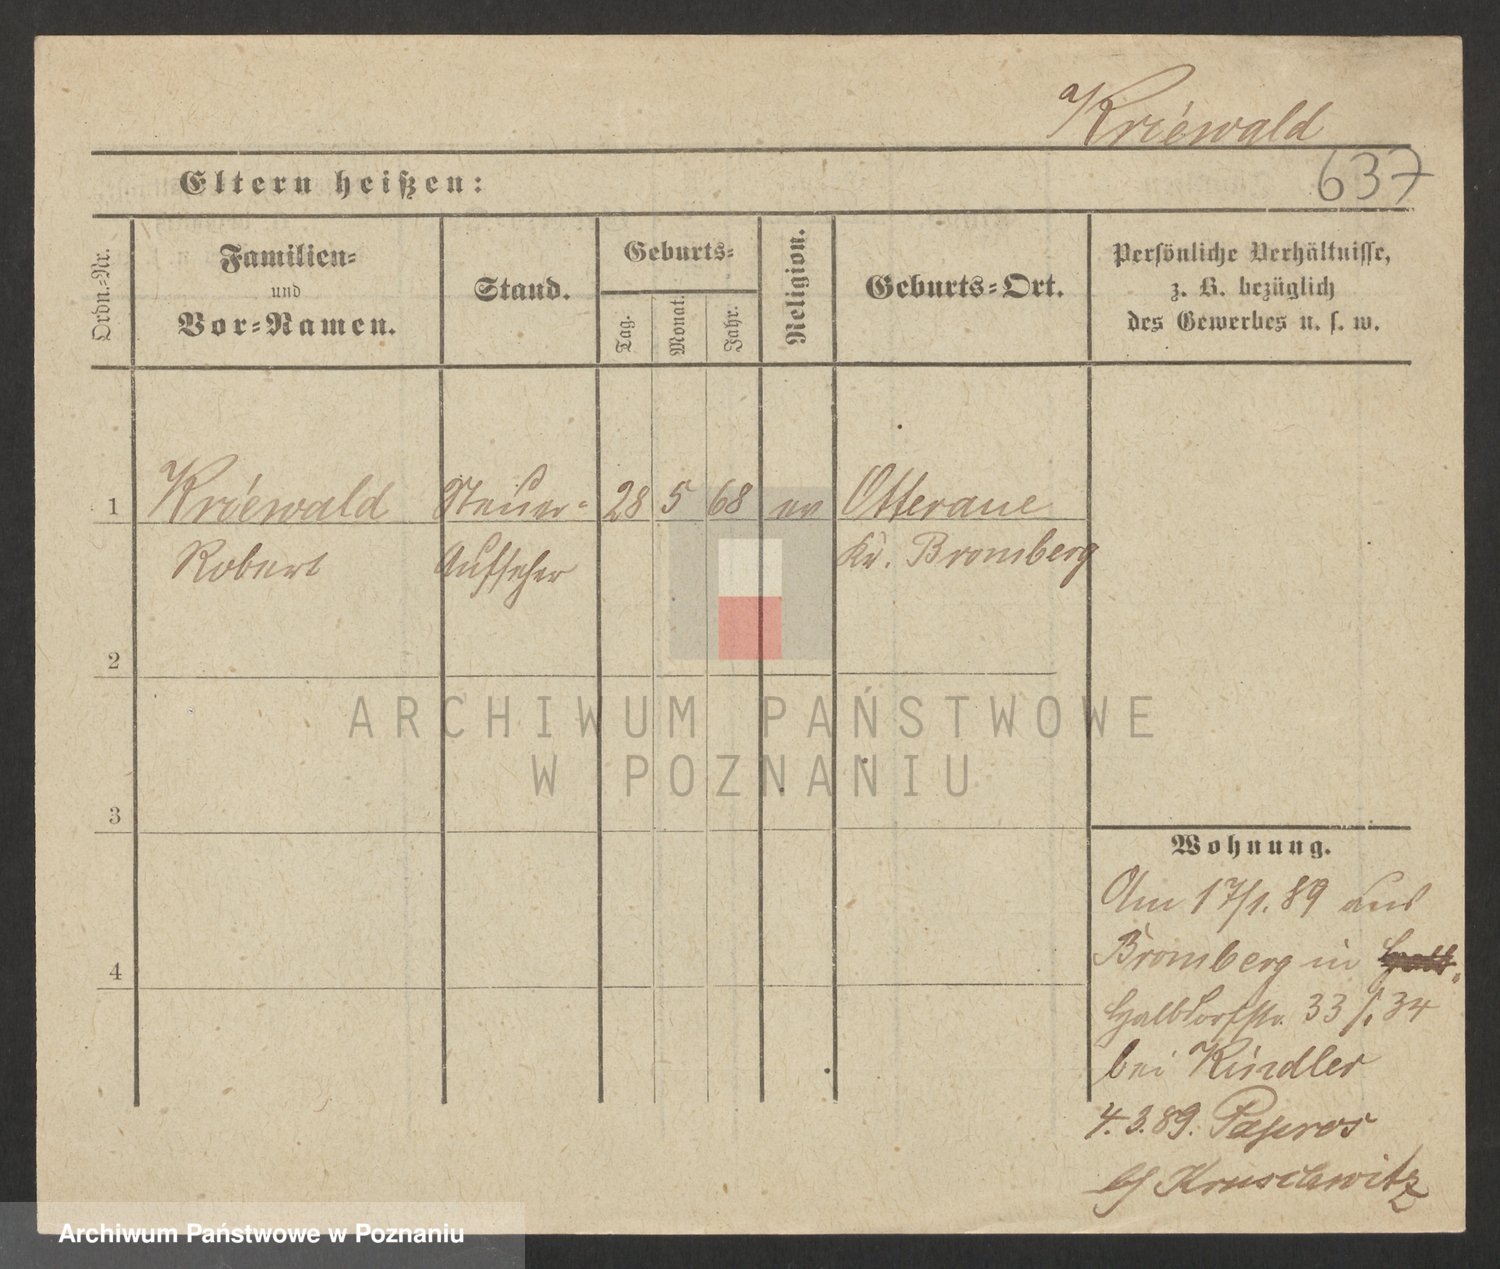 Kriewald
637
Eltern heißen:
Ordn.-Nr.
Familien-
und
Vor-Namen.
Stand.
Geburts-
Tag.
Monat.
Jahr.
Religion.
Geburts-Ort.
Persönliche Verhältnisse,
z. B. bezüglich
des Gewerbes u. s. w.
1 Kriewald Steuer- 28 5 68 ev Otteraue
Robert Aufseher Kr. Bromberg
2
3
4
ARCHIWUM PAŃSTWOWE
W POZNANIU
Wohnung.
Am 17/1. 89 aus
Bromberg in
Halbdorfstr. 33/34
bei Kindler
4.3.89. Papros
b/ Kruschwitz
Archiwum Państwowe w Poznaniu